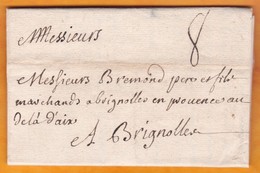 Messieurs
8
Messieurs Bremond pere et fils
marchands a brignolles en provence au
dela d'aix
A Brignolles